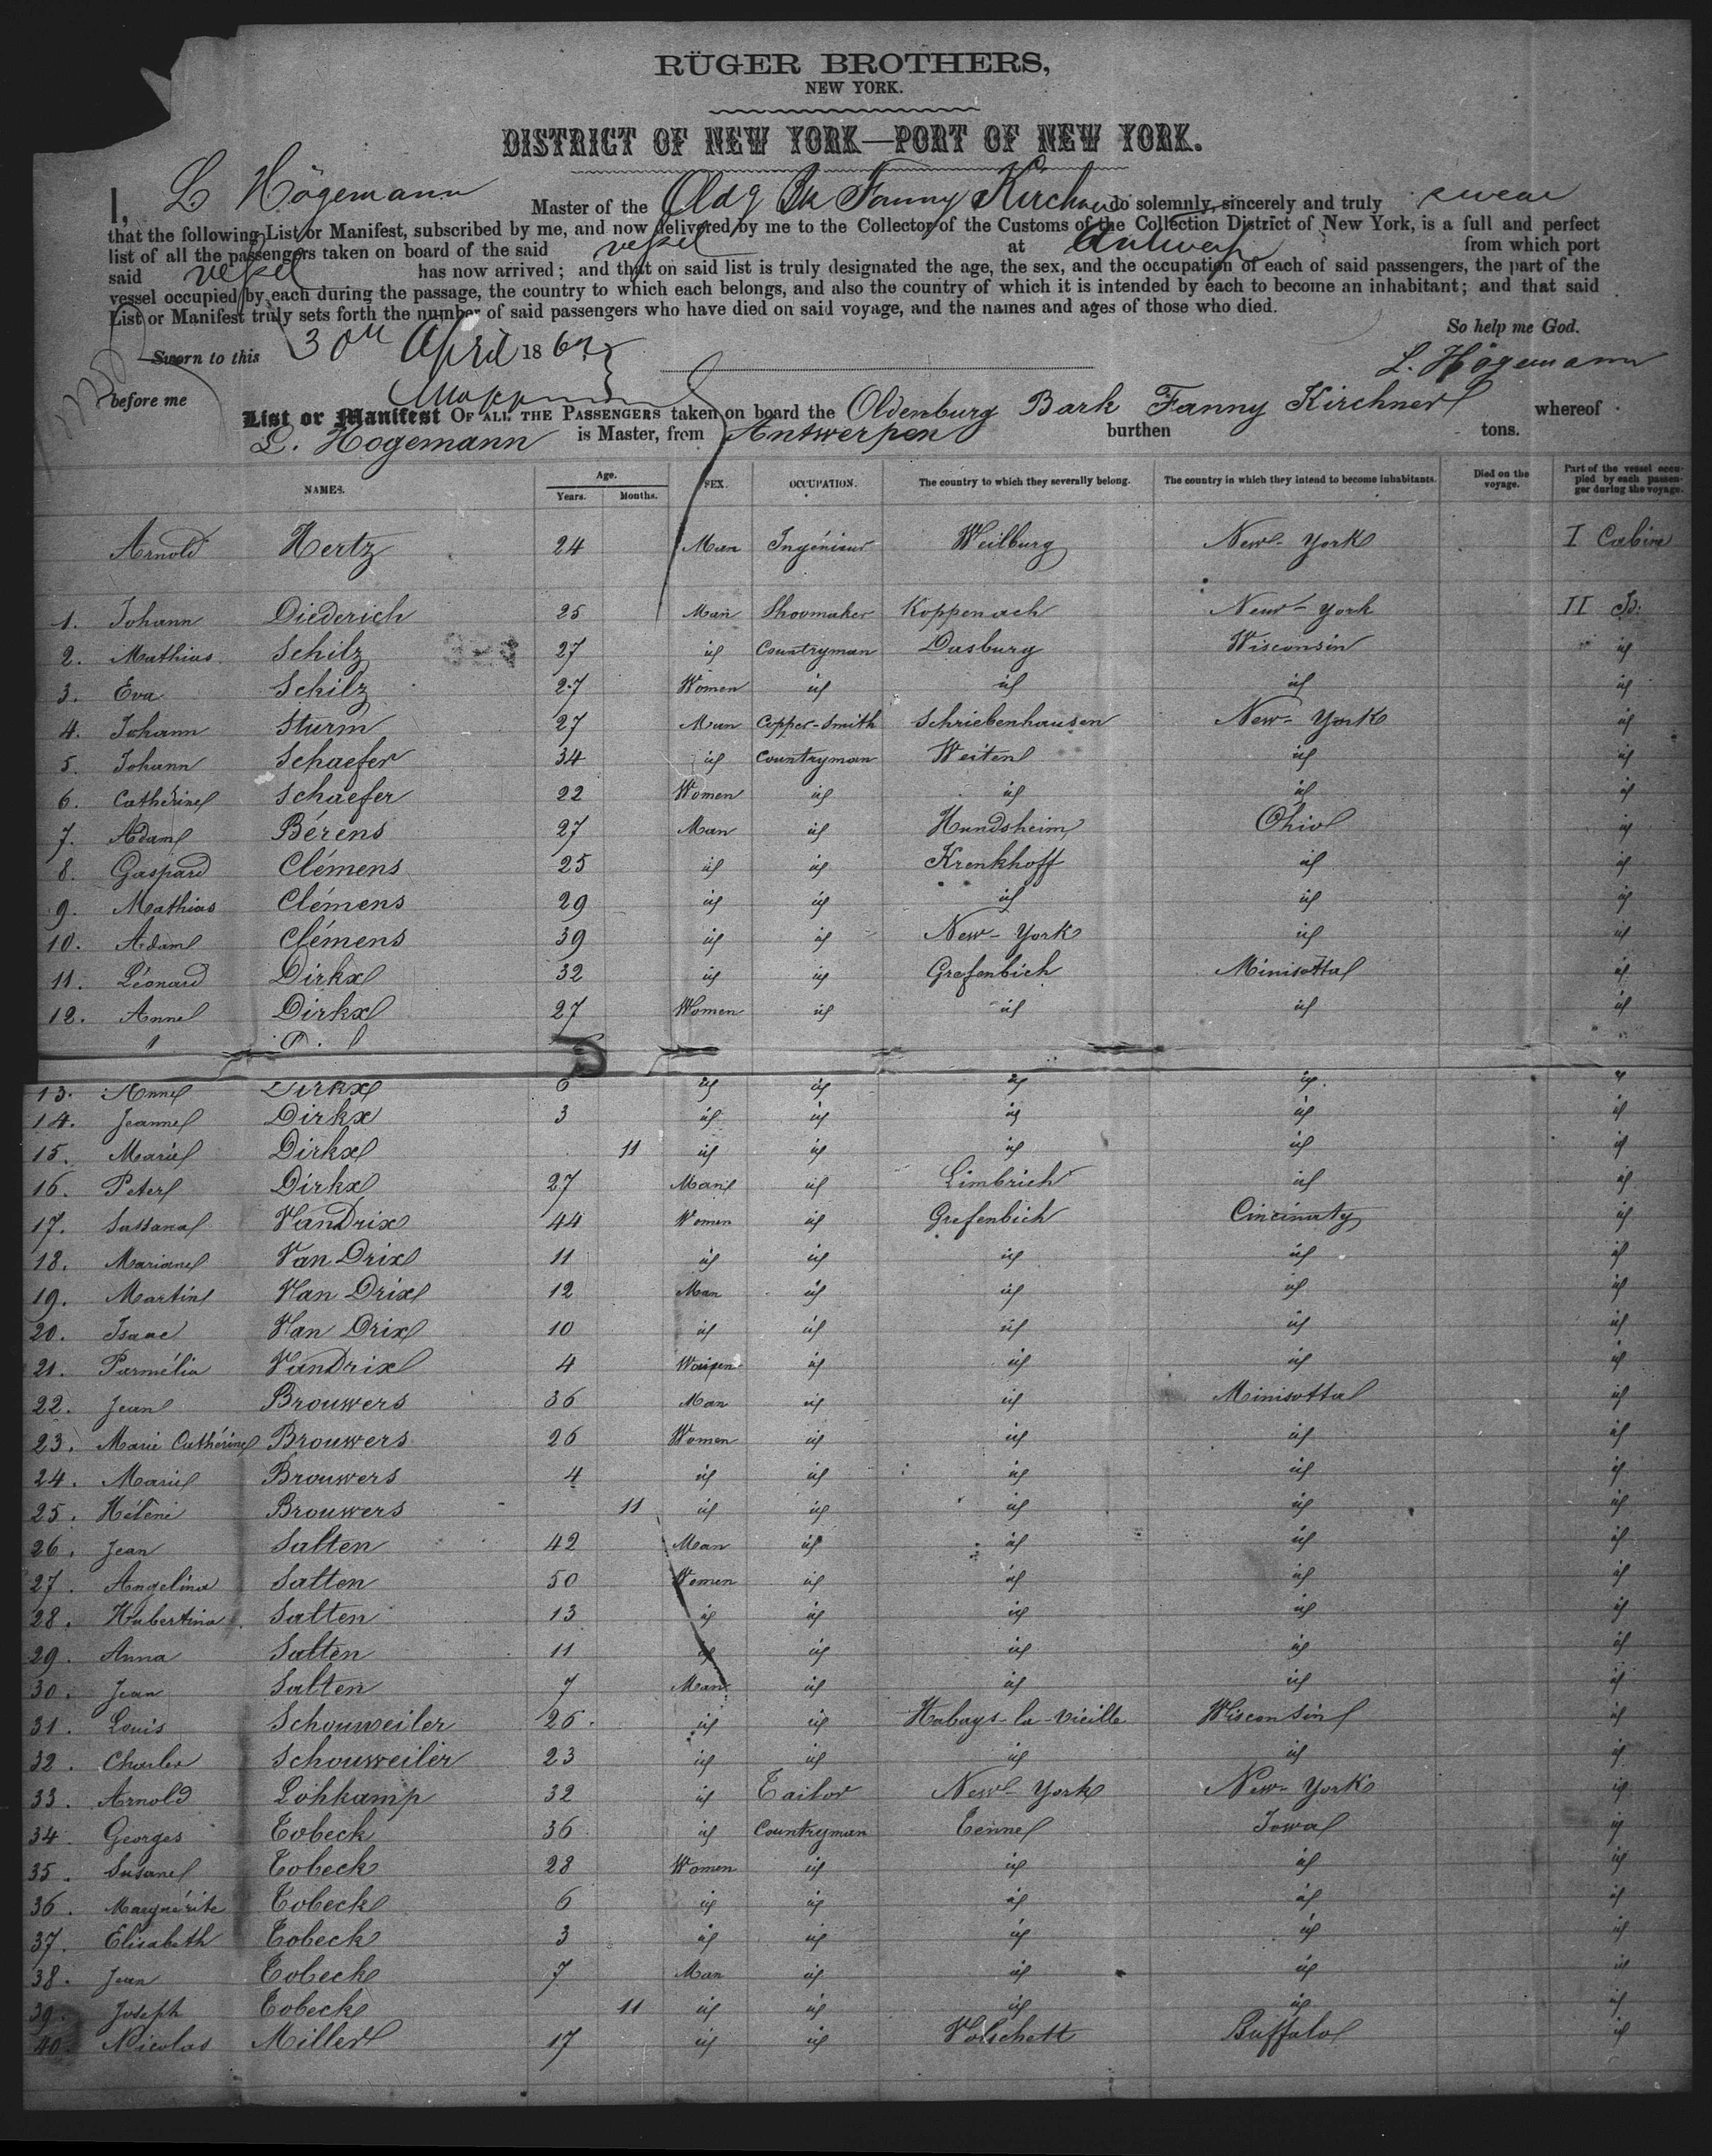 RÜGER BROTHERS,
NEW YORK.
DISTRICT OF NEW YORK—PORT OF NEW YORK.
I, L Högemann Master of the Oldg Bk Fanny Kirchner do solemnly, sincerely and truly swear
that the following List or Manifest, subscribed by me, and now delivered by me to the Collector of the Customs of the Collection District of New York, is a full and perfect
list of all the passengers taken on board of the said vessel at Antwerp from which port
said vessel has now arrived; and that on said list is truly designated the age, the sex, and the occupation of each of said passengers, the part of the
vessel occupied by each during the passage, the country to which each belongs, and also the country of which it is intended by each to become an inhabitant; and that said
List or Manifest truly sets forth the number of said passengers who have died on said voyage, and the names and ages of those who died.
So help me God.
Sworn to this 30th April 186
L. Högemann
before me
List or Manifest OF ALL THE PASSENGERS taken on board the Oldenburg Bark Fanny Kirchner whereof
L. Hogemann is Master, from Antwerpen burthen tons.
NAMES. Age. Years. Months. SEX. OCCUPATION. The country to which they severally belong. The country in which they intend to become inhabitants. Died on the voyage. Part of the vessel occupied by each passenger during the voyage.
Arnold Hertz 24 Man Ingénieur Weilburg New-York I Cabine
1. Johann Diederich 25 Man Shoomaker Koppenach New-York II
2. Mathias Schilz 27 id Countryman Dasburg Wisconsin id
3. Eva Schilz 27 Women id id id id
4. Johann Sturm 27 Man Copper-Smith Schriebenhausen New-York id
5. Johann Schaefer 34 id Countryman Weiten id id
6. Cathérine Schaefer 22 Women id id id id
7. Adam Bérens 27 Man id Hundsheim Ohio id
8. Gaspard Clémens 25 id id Krenkhoff id id
9. Mathias Clémens 29 id id id id id
10. Adam Clémens 39 id id New-York id id
11. Léonard Dirkx 32 id id Grefenbich Minisotta id
12. Anne Dirkx 27 Women id id id id
13. Anne Dirkx 6 id id id id id
14. Jeanne Dirkx 3 id id id id id
15. Marie Dirkx 11 id id id id id
16. Peter Dirkx 27 Man id Limbrich id id
17. Sussana VanDrix 44 Women id Grefenbich Cincinaty id
18. Mariane Van Drix 11 id id id id id
19. Martin Van Drix 12 Man id id id id
20. Isaac Van Drix 10 id id id id id
21. Parmélia VanDrix 4 Women id id id id
22. Jean Brouwers 36 Man id id Minisotta id
23. Marie Cathérine Brouwers 26 Women id id id id
24. Marie Brouwers 4 id id id id id
25. Héléne Brouwers 11 id id id id id
26. Jean Salten 42 Man id id id id
27. Angelina Salten 50 Women id id id id
28. Hubertina Salten 13 id id id id id
29. Anna Salten 11 id id id id id
30. Jean Salten 7 Man id id id id
31. Louis Schouweiler 26 id id Habays-la-Vieille Wisconsin id
32. Charles Schouweiler 23 id id id id id
33. Arnold Lohkamp 32 id Tailor New-York New-York id
34. Georges Tobeck 36 id Countryman Tennel Iowa id
35. Susane Tobeck 28 Women id id id id
36. Marguérite Tobeck 6 id id id id id
37. Elisabeth Tobeck 3 id id id id id
38. Jean Tobeck 7 Man id id id id
39. Joseph Tobeck 11 id id id id id
40. Nicolas Miller 17 id id Volschett Buffalo id